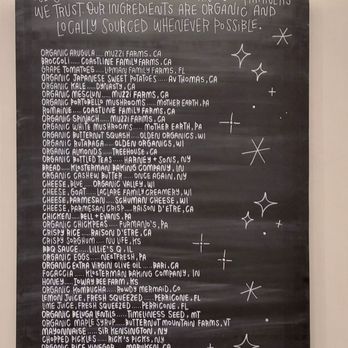 WE TRUST OUR INGREDIENTS ARE ORGANIC AND
LOCALLY SOURCED WHENEVER POSSIBLE.
ORGANIC ARUGULA.... MUZZI FARMS, CA
BROCCOLI..... COASTLINE FAMILY FARMS, CA
GRAPE TOMATOES.... LIPMAN FAMILY FARMS, FL
ORGANIC JAPANESE SWEET POTATOES.... AV THOMAS, CA
ORGANIC KALE.... DYNASTY, CA
ORGANIC MESCLUN.... MUZZI FARMS, CA
ORGANIC PORTOBELLO MUSHROOMS.... MOTHER EARTH, PA
ROMAINE.... COASTLINE FAMILY FARMS, CA
ORGANIC SPINACH.... MUZZI FARMS, CA
ORGANIC WHITE MUSHROOMS.... MOTHER EARTH, PA
ORGANIC BUTTERNUT SQUASH.... OLDEN ORGANICS, WI
ORGANIC RUTABAGA.... OLDEN ORGANICS, WI
ORGANIC ALMONDS.... TREEHOUSE, CA
ORGANIC BOTTLED TEAS.... HARNEY & SONS, NY
BREAD.... KLOSTERMAN BAKING COMPANY, IN
ORGANIC CASHEW BUTTER.... ONCE AGAIN, NY
CHEESE, BLUE.... ORGANIC VALLEY, WI
CHEESE, GOAT.... LACLARE FAMILY CREAMERY, WI
CHEESE, PARMESAN.... SCHUMAN CHEESE, WI
CHEESE, PARMESAN CRISP.... RAISON D'ETRE, CA
CHICKEN.... BELL + EVANS, PA
ORGANIC CHICKPEAS.... FURMANO'S, PA
CRISPY RICE.... RAISON D'ETRE, CA
CRISPY SORGHUM.... NU LIFE, KS
BBQ SAUCE.... LILLIE'S Q, IL
ORGANIC EGGS.... NESTFRESH, PA
ORGANIC EXTRA VIRGIN OLIVE OIL.... BARI, CA
FOCACCIA.... KLOSTERMAN BAKING COMPANY, IN
HONEY.... BEE FARM, KS
ORGANIC KOMBUCHA.... ROWDY MERMAID, CO
LEMON JUICE, FRESH SQUEEZED.... PERRICONE, FL
LIME JUICE, FRESH SQUEEZED.... PERRICONE, FL
ORGANIC BELUGA LENTILS.... TIMELESS SEED, MT
ORGANIC MAPLE SYRUP.... BUTTERNUT MOUNTAIN FARMS, VT
MAYONNAISE.... SIR KENSINGTON, NY
CHOPPED PICKLES.... RICK'S PICKS, NY
ORGANIC RICE VINEGAR.... MARUKAN, CA